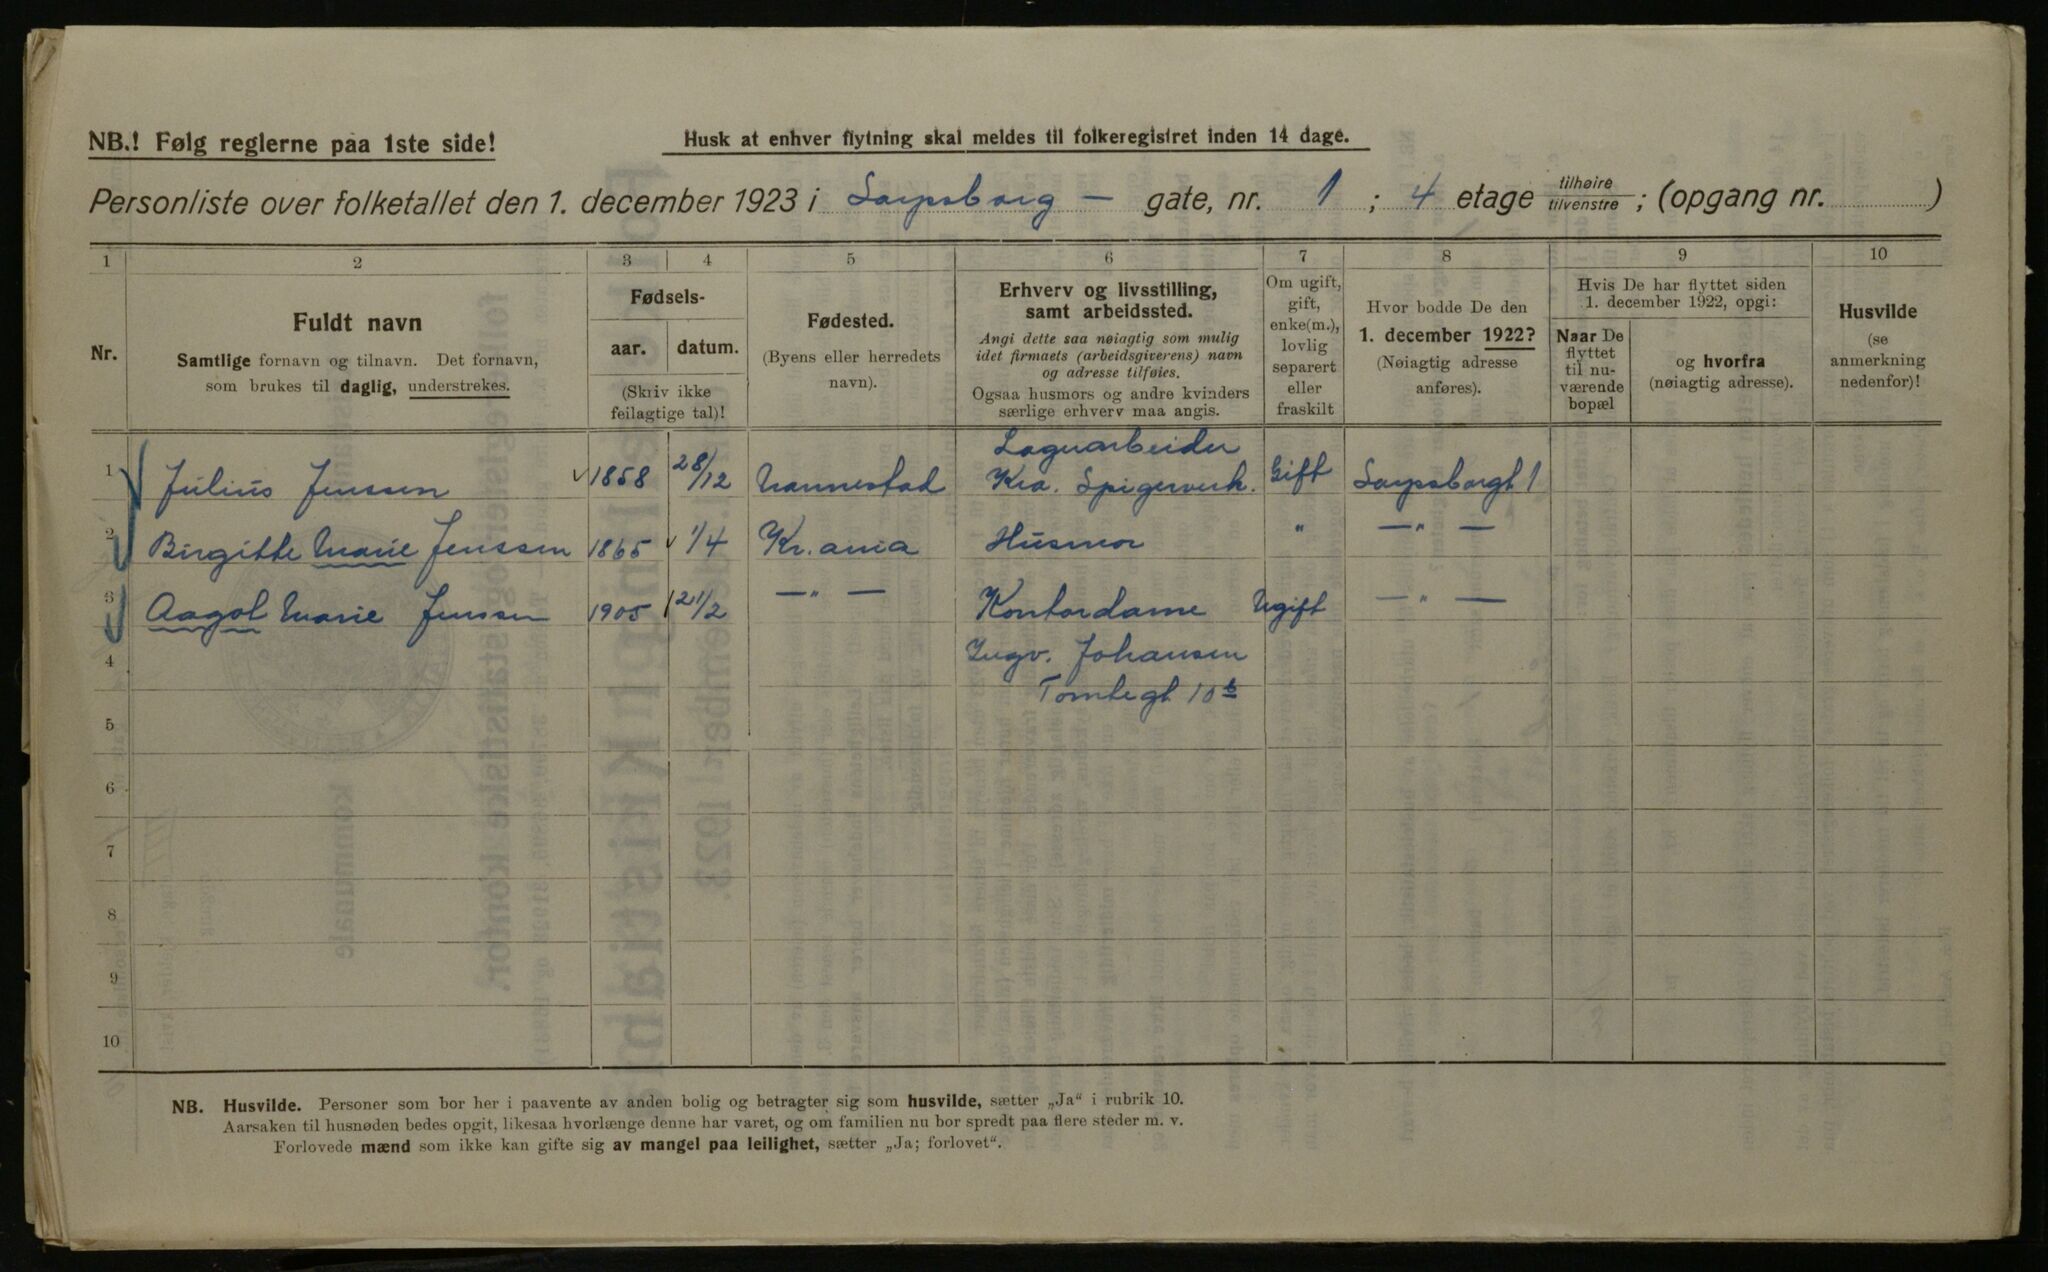 NB.! Følg reglerne paa 1ste side!
Husk at enhver flytning skal meldes til folkeregistret inden 14 dage.
Personliste over folketallet den 1. december 1923 i Sarpsborg - gate, nr. 1 ; 4 etage tilhøire tilvenstre ; (opgang nr. )
1 2 3 4 5 6 7 8 9 10
Nr.
Fuldt navn
Samtlige fornavn og tilnavn. Det fornavn,
som brukes til daglig, understrekes.
Fødsels-
aar. datum.
(Skriv ikke
feilagtige tal)!
Fødested.
(Byens eller herredets
navn).
Erhverv og livsstilling,
samt arbeidssted.
Angi dette saa nøiagtig som mulig
idet firmaets (arbeidsgiverens) navn
og adresse tilføies.
Ogsaa husmors og andre kvinders
særlige erhverv maa angis.
Om ugift,
gift,
enke(m.),
lovlig
separert
eller
fraskilt
Hvor bodde De den
1. december 1922?
(Nøiagtig adresse
anføres).
Hvis De har flyttet siden
1. december 1922, opgi:
Naar De
flyttet
til nu-
værende
bopæl
og hvorfra
(nøiagtig adresse).
Husvilde
(se
anmerkning
nedenfor)!
Lagerarbeider
1 Julius Jenssen 1858 28/12 Nannestad Kra. Spigerverk. Gift Sarpsborggt 1
2 Birgitte Marie Jenssen 1865 1/4 Kr.ania Husmor " — " —
3 Aagot Marie Jenssen 1905 21/2 — " — Kontordame Ugift — " —
4 Ingv. Johansen
5 Tomtegt 10b
6
7
8
9
10
NB. Husvilde. Personer som bor her i paavente av anden bolig og betragter sig som husvilde, sætter „Ja“ i rubrik 10.
Aarsaken til husnøden bedes opgit, likesaa hvorlænge denne har varet, og om familien nu bor spredt paa flere steder m. v.
Forlovede mænd som ikke kan gifte sig av mangel paa leilighet, sætter „Ja; forlovet“.